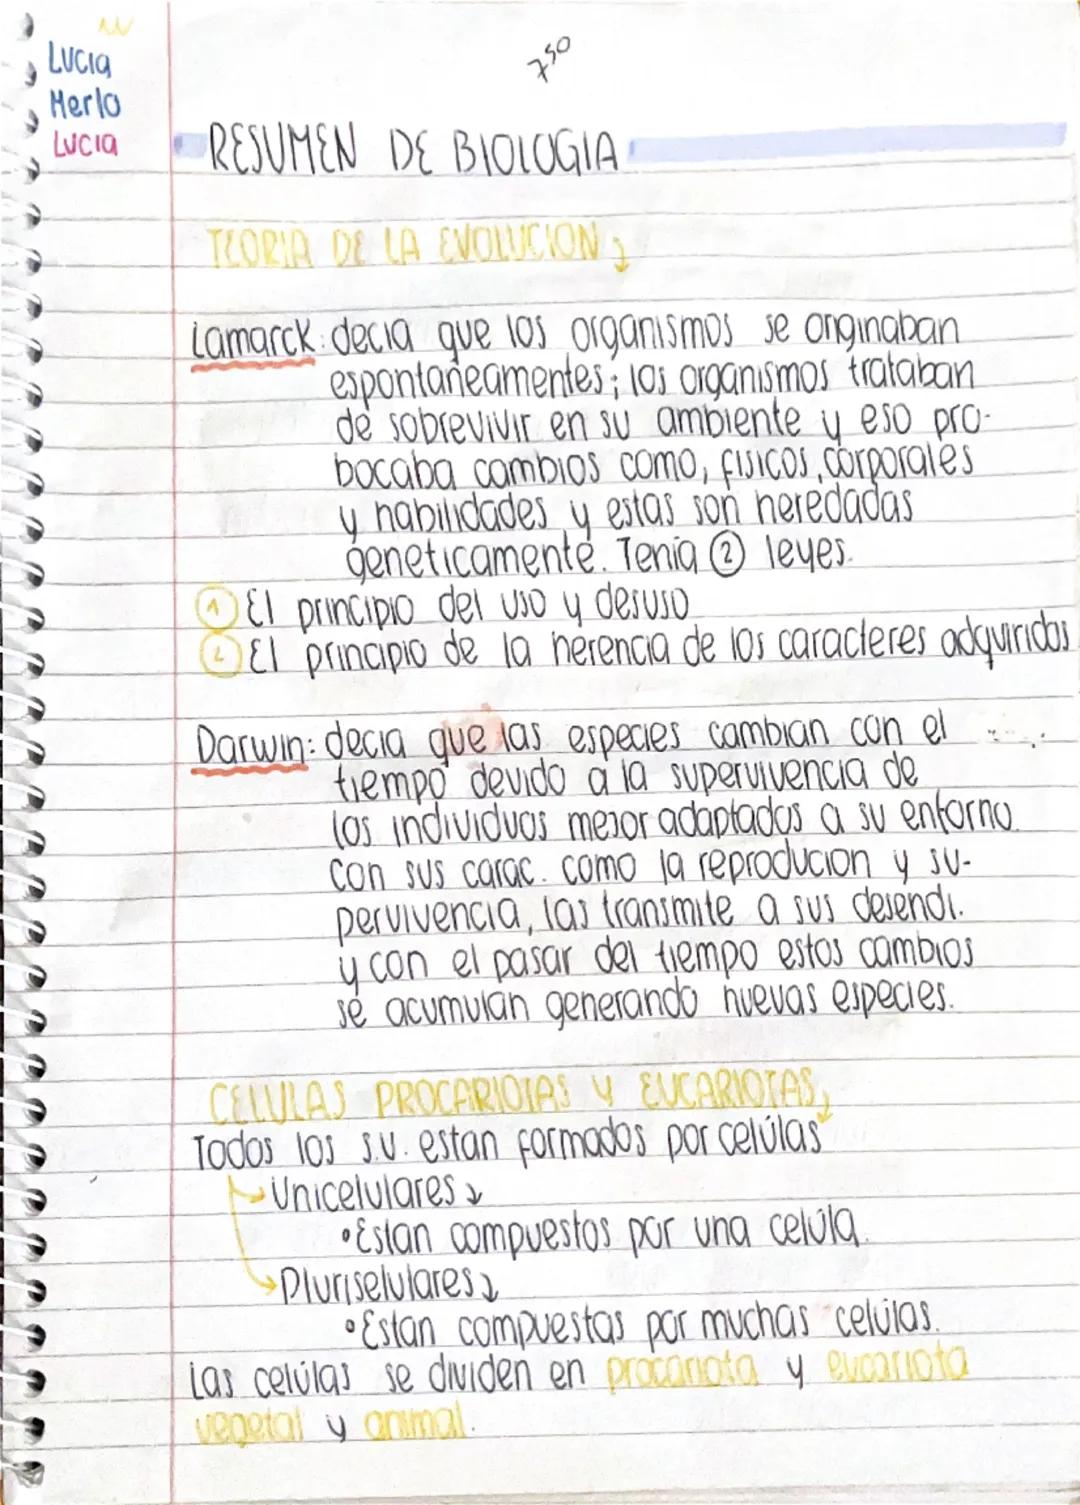 Lucia
Merlo
Lucia
7⁵⁰
RESUMEN DE BIOLOGIA
TEORIA DE LA EVOLUCION
Lamarck: decia que los organismos se originaban
espontaneamentes; los organismos trataban
de sobrevivir en su ambiente y eso pro-
bocaba cambios como, fisicos, corporales
y habilidades y estas son heredadas
geneticamente. Tenia ② leyes.
① El principio del uso y desuso
② El principio de la herencia de los caracteres adquiridos
Darwin: decia que las especies cambian con el
tiempo devido a la supervivencia de
los individuos mejor adaptados a su entorno
con sus carac. como la reproducion y su-
pervivencia, las transmite a sus desendi.
y con el pasar del tiempo estos cambios
se acumulan generando nuevas especies.
CELULAS PROCARIOTAS Y EUCARIOTAS
Todos los s.v. estan formados por celúlas
Unicelulares
•Estan compuestos por una celúla.
Pluriselulares
•Estan compuestas por muchas celúlas.
Las celúlas se dividen en procariota y eucariota
vegetal y animal.